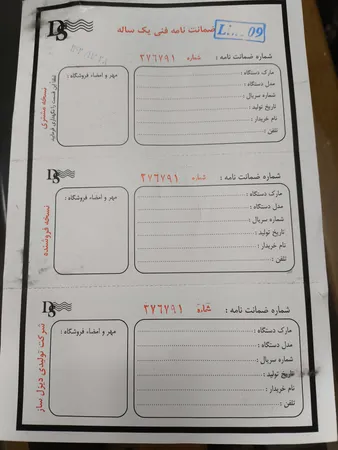 DS
ضمانت نامه فنی یک ساله
09
شماره ضمانت نامه : شماره ۲۷۶۷۹۱
مارک دستگاه :
مدل دستگاه :
شماره سریال :
تاریخ تولید :
نام خریدار :
تلفن :
مهر و امضاء فروشگاه :
نسخه مشتری
لطفا این قسمت را نگهداری فرمائید
DS
شماره ضمانت نامه : شماره ۲۷۶۷۹۱
مارک دستگاه :
مدل دستگاه :
شماره سریال :
تاریخ تولید :
نام خریدار :
تلفن :
مهر و امضاء فروشگاه :
نسخه فروشنده
DS
شماره ضمانت نامه : شماره ۲۷۶۷۹۱
مارک دستگاه :
مدل دستگاه :
شماره سریال :
تاریخ تولید :
نام خریدار :
تلفن :
مهر و امضاء فروشگاه :
شرکت تولیدی دیزل ساز